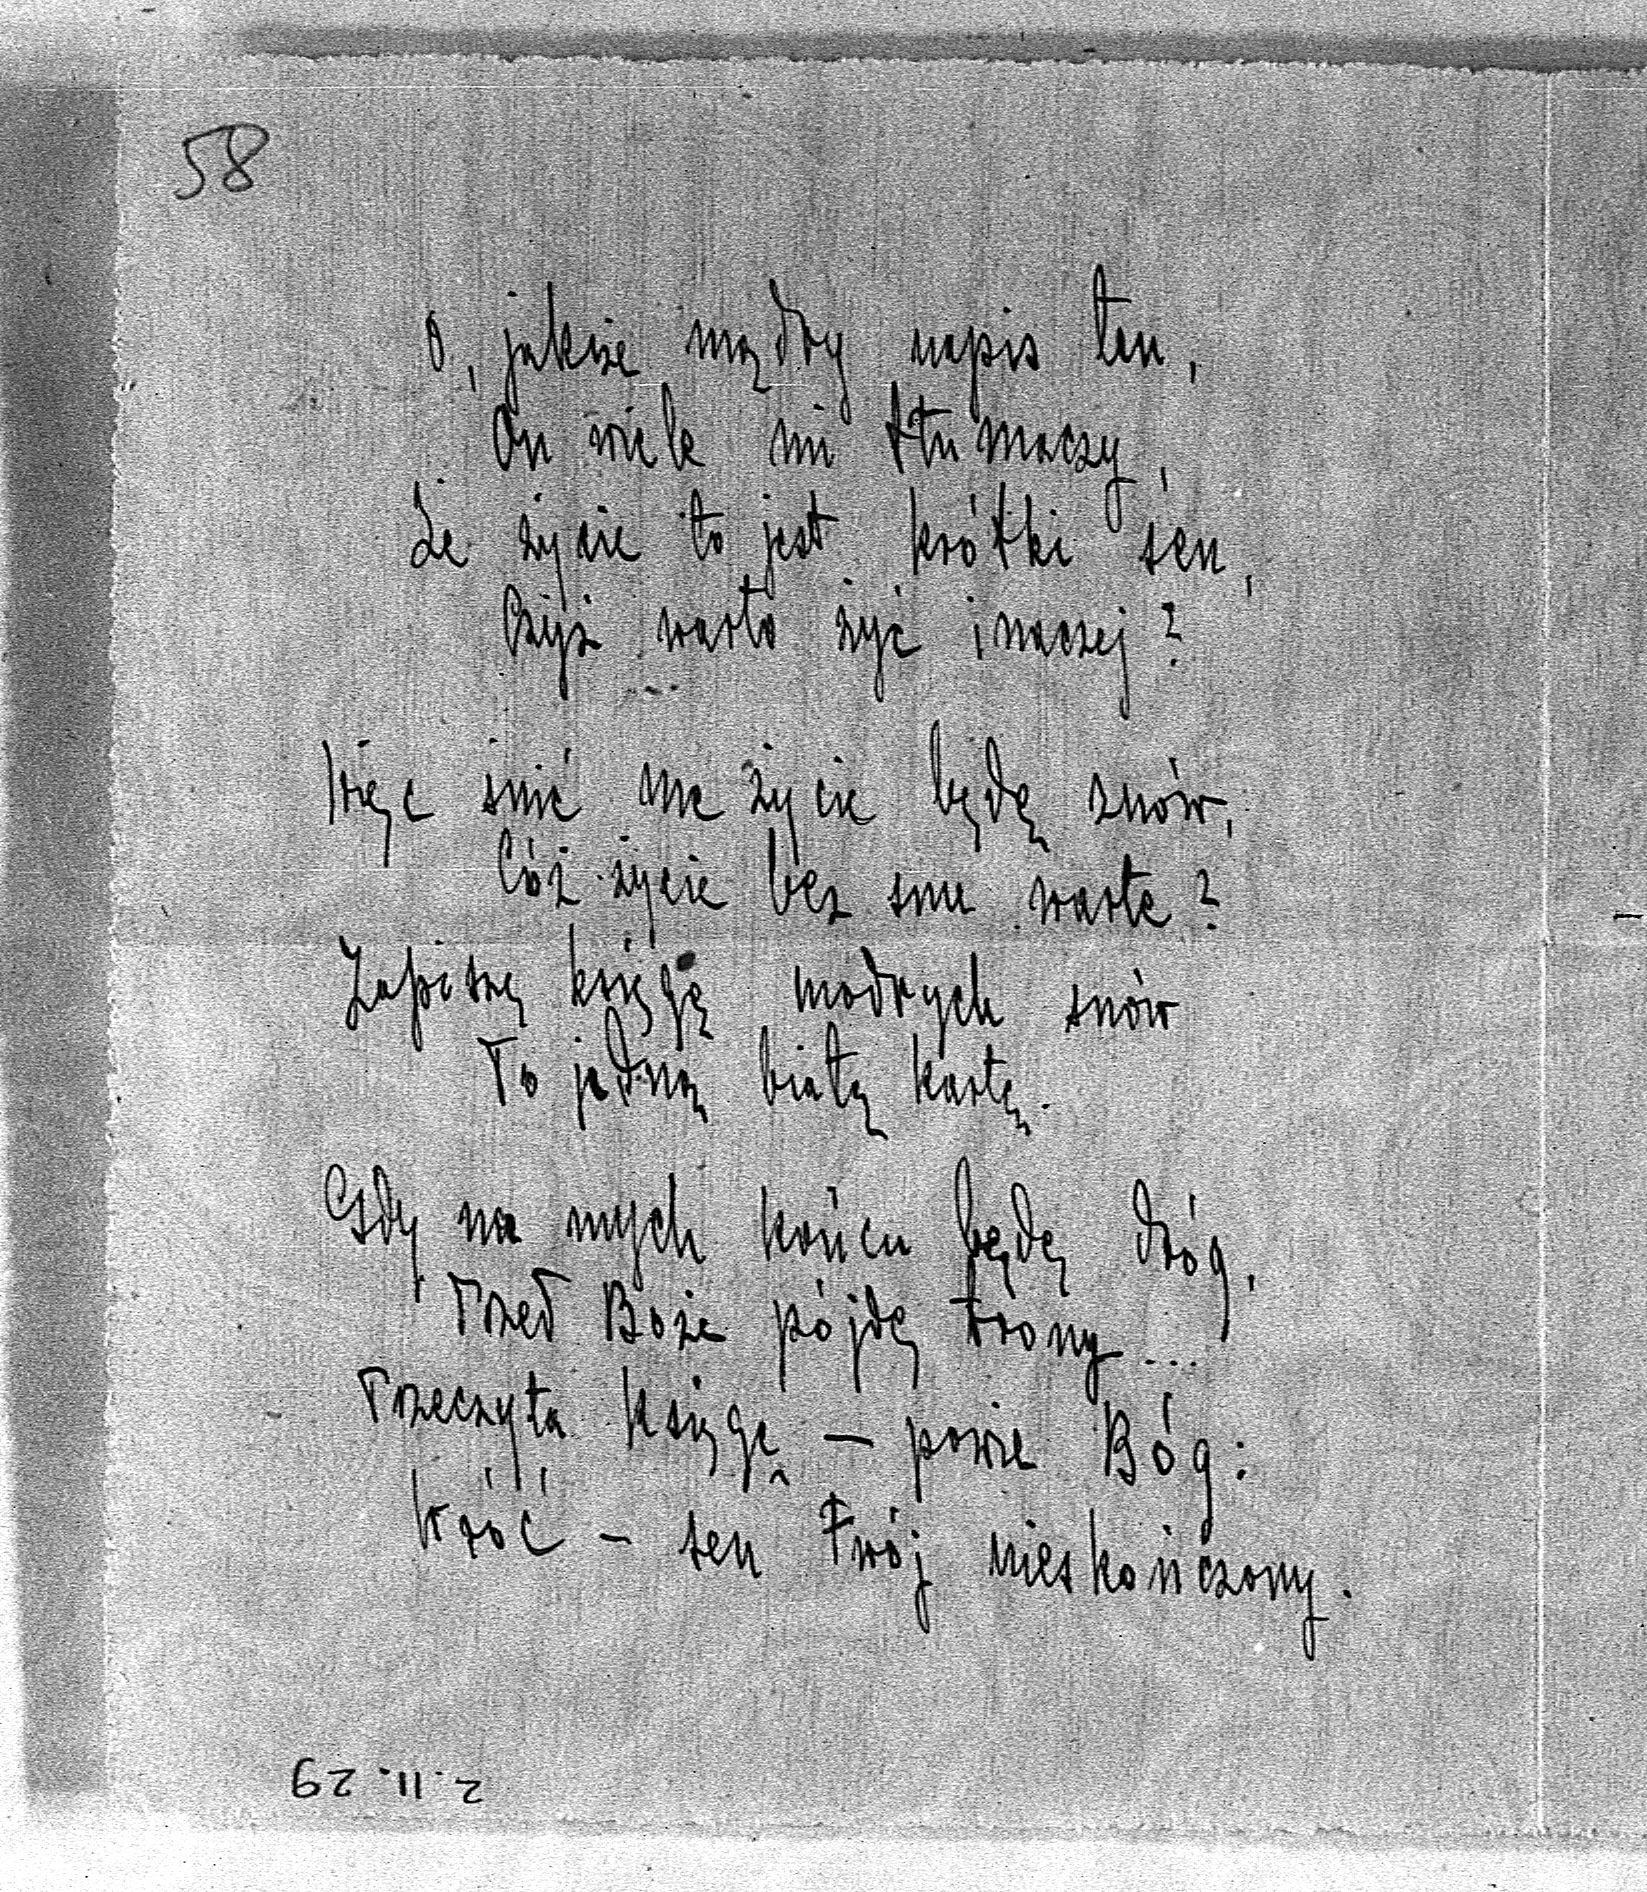 58
O, jakże mądry napis ten,
On wiele mi tłumaczy,
Że życie to jest krótki sen,
Czyż warto żyć inaczej?
Więc śnić me życie będę znów,
Cóż życie bez snu warte?
Zapiszę księgę modrych snów
Tą jedną białą kartę.
Gdy na mych końcu będę dróg,
Przed Boże pójdę trony...
Przeczyta księgę — powie Bóg:
Wróć – sen twój nieskończony.
2.11.29